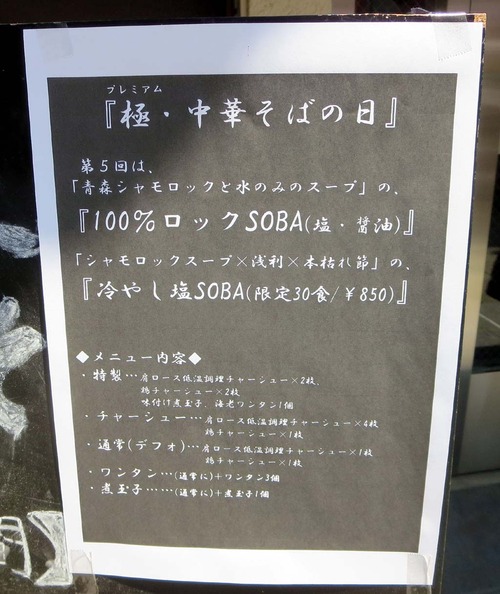 プレミアム
『極・中華そばの日』
第5回は、
「青森シャモロックと水のみのスープ」の、
『100%ロックSOBA(塩・醤油)』
「シャモロックスープ×浅利×本枯れ節」の、
『冷やし塩SOBA(限定30食/¥850)』
◆メニュー内容◆
・特製…肩ロース低温調理チャーシュー×2枚、
鶏チャーシュー×2枚
味付け煮玉子、海老ワンタン1個
・チャーシュー…肩ロース低温調理チャーシュー×4枚
鶏チャーシュー×1枚
・通常(デフォ)…肩ロース低温調理チャーシュー×1枚
鶏チャーシュー×1枚
・ワンタン…(通常に)+ワンタン3個
・煮玉子……(通常に)+煮玉子1個